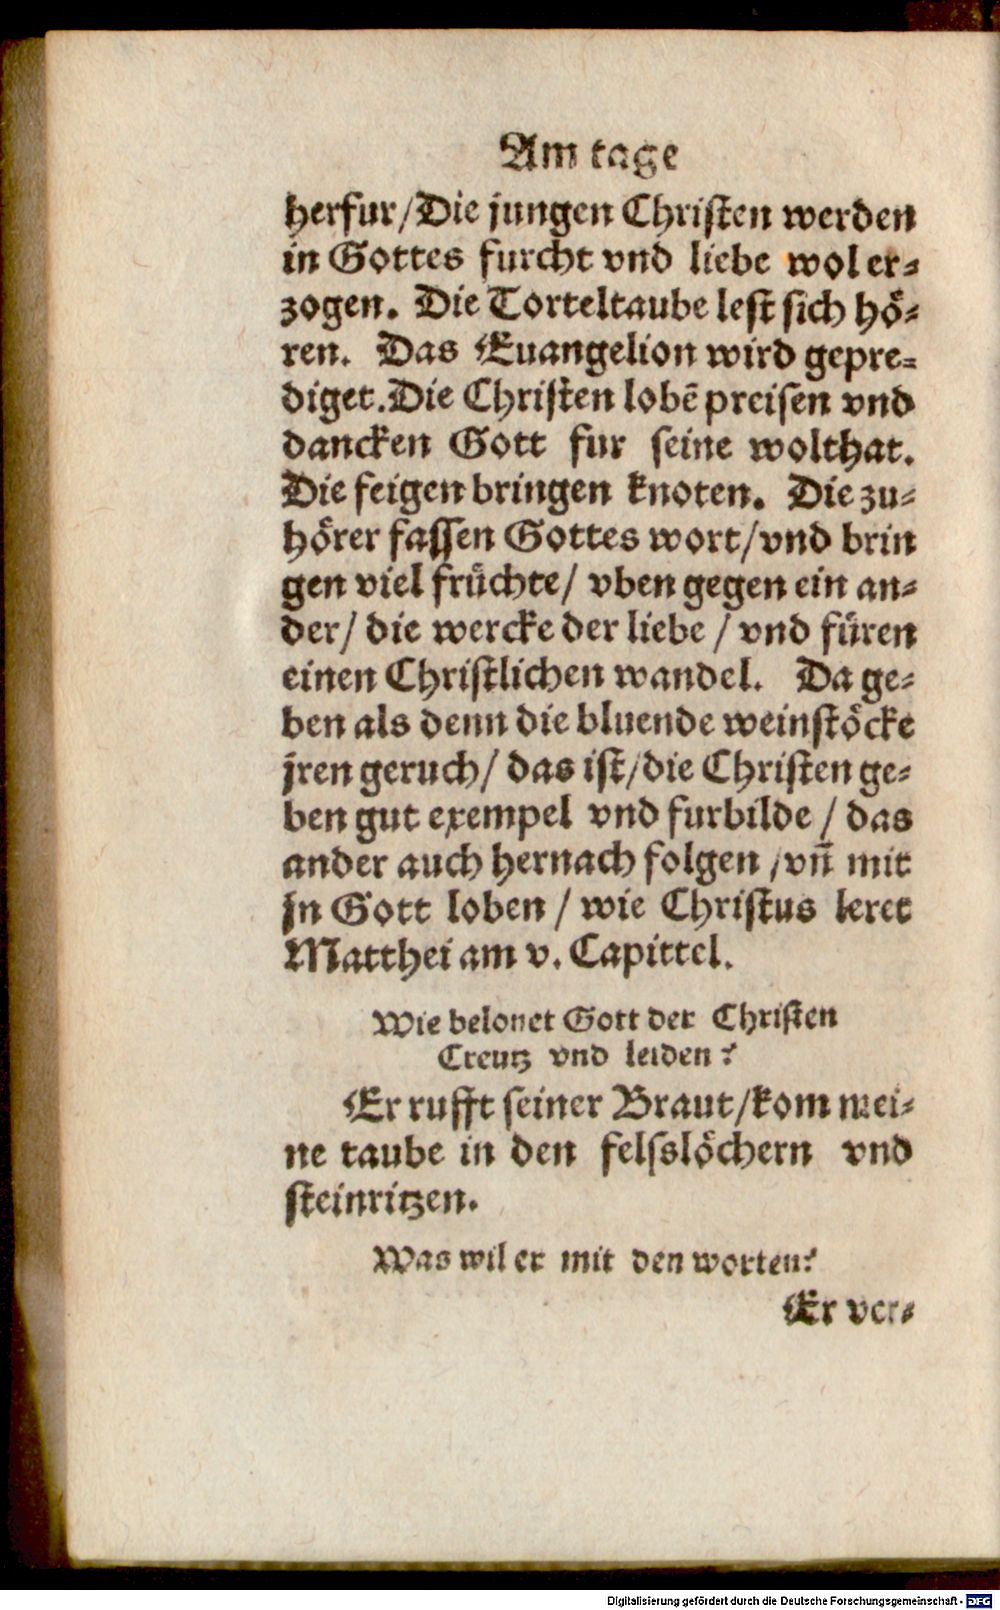 Am tage
herfur/Die jungen Christen werden
in Gottes furcht vnd liebe wol er-
zogen. Die Torteltaube lest sich hö-
ren. Das Euangelion wird gepre-
diget.Die Christen lobē preisen vnd
dancken Gott fur seine wolthat.
Die feigen bringen knoten. Die zu-
hörer fassen Gottes wort/vnd brin
gen viel früchte/ vben gegen ein an-
der/ die wercke der liebe / vnd füren
einen Christlichen wandel. Da ge-
ben als denn die bluende weinstöcke
jren geruch/ das ist/die Christen ge-
ben gut exempel vnd furbilde / das
ander auch hernach folgen /vn̄ mit
jn Gott loben / wie Christus leret
Matthei am v. Capittel.
Wie belonet Gott der Christen
Creutz vnd leiden?
Er rufft seiner Braut/kom mei-
ne taube in den felsslöchern vnd
steinritzen.
Was wil er mit den worten?
Er ver-
Digitalisierung gefördert durch die Deutsche Forschungsgemeinschaft - DFG